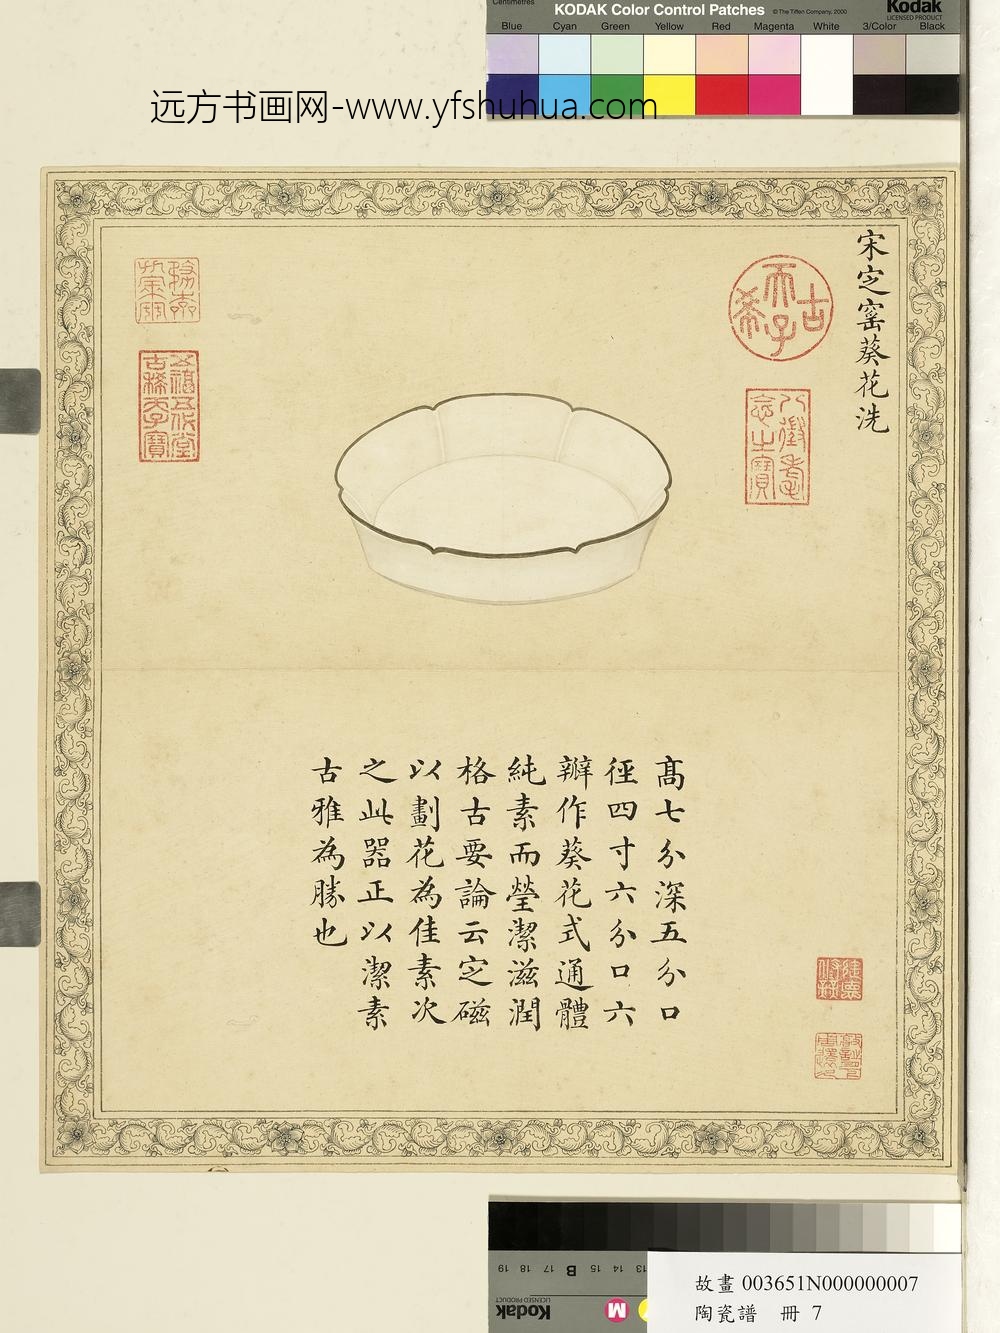 Centimetres
KODAK Color Control Patches
© The Tiffen Company, 2000
Kodak
LICENSED PRODUCT
Blue Cyan Green Yellow Red Magenta White 3/Color Black
远方书画网-www.yfshuhua.com
宋定窰葵花洗
古希天子
八徵耄念之寶
五福五代堂古稀天子寶
高七分深五分口
徑四寸六分口六
辧作葵花式通體
純素而瑩潔滋潤
格古要論云定磁
以劃花為佳素次
之此器正以潔素
古雅為勝也
19 18 17 B 15 14 13
Kodak
LICENSED PRODUCT
M
故畫 003651N000000007
陶瓷譜 冊 7